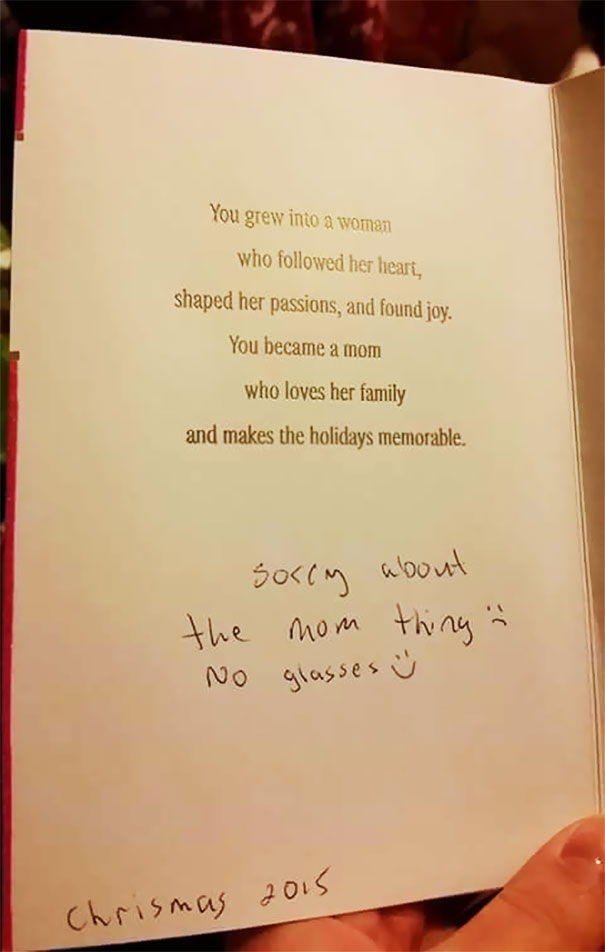 You grew into a woman
who followed her heart,
shaped her passions, and found joy.
You became a mom
who loves her family
and makes the holidays memorable.
sorry about
the mom thing :(
No glasses :)
Chrismas 2015